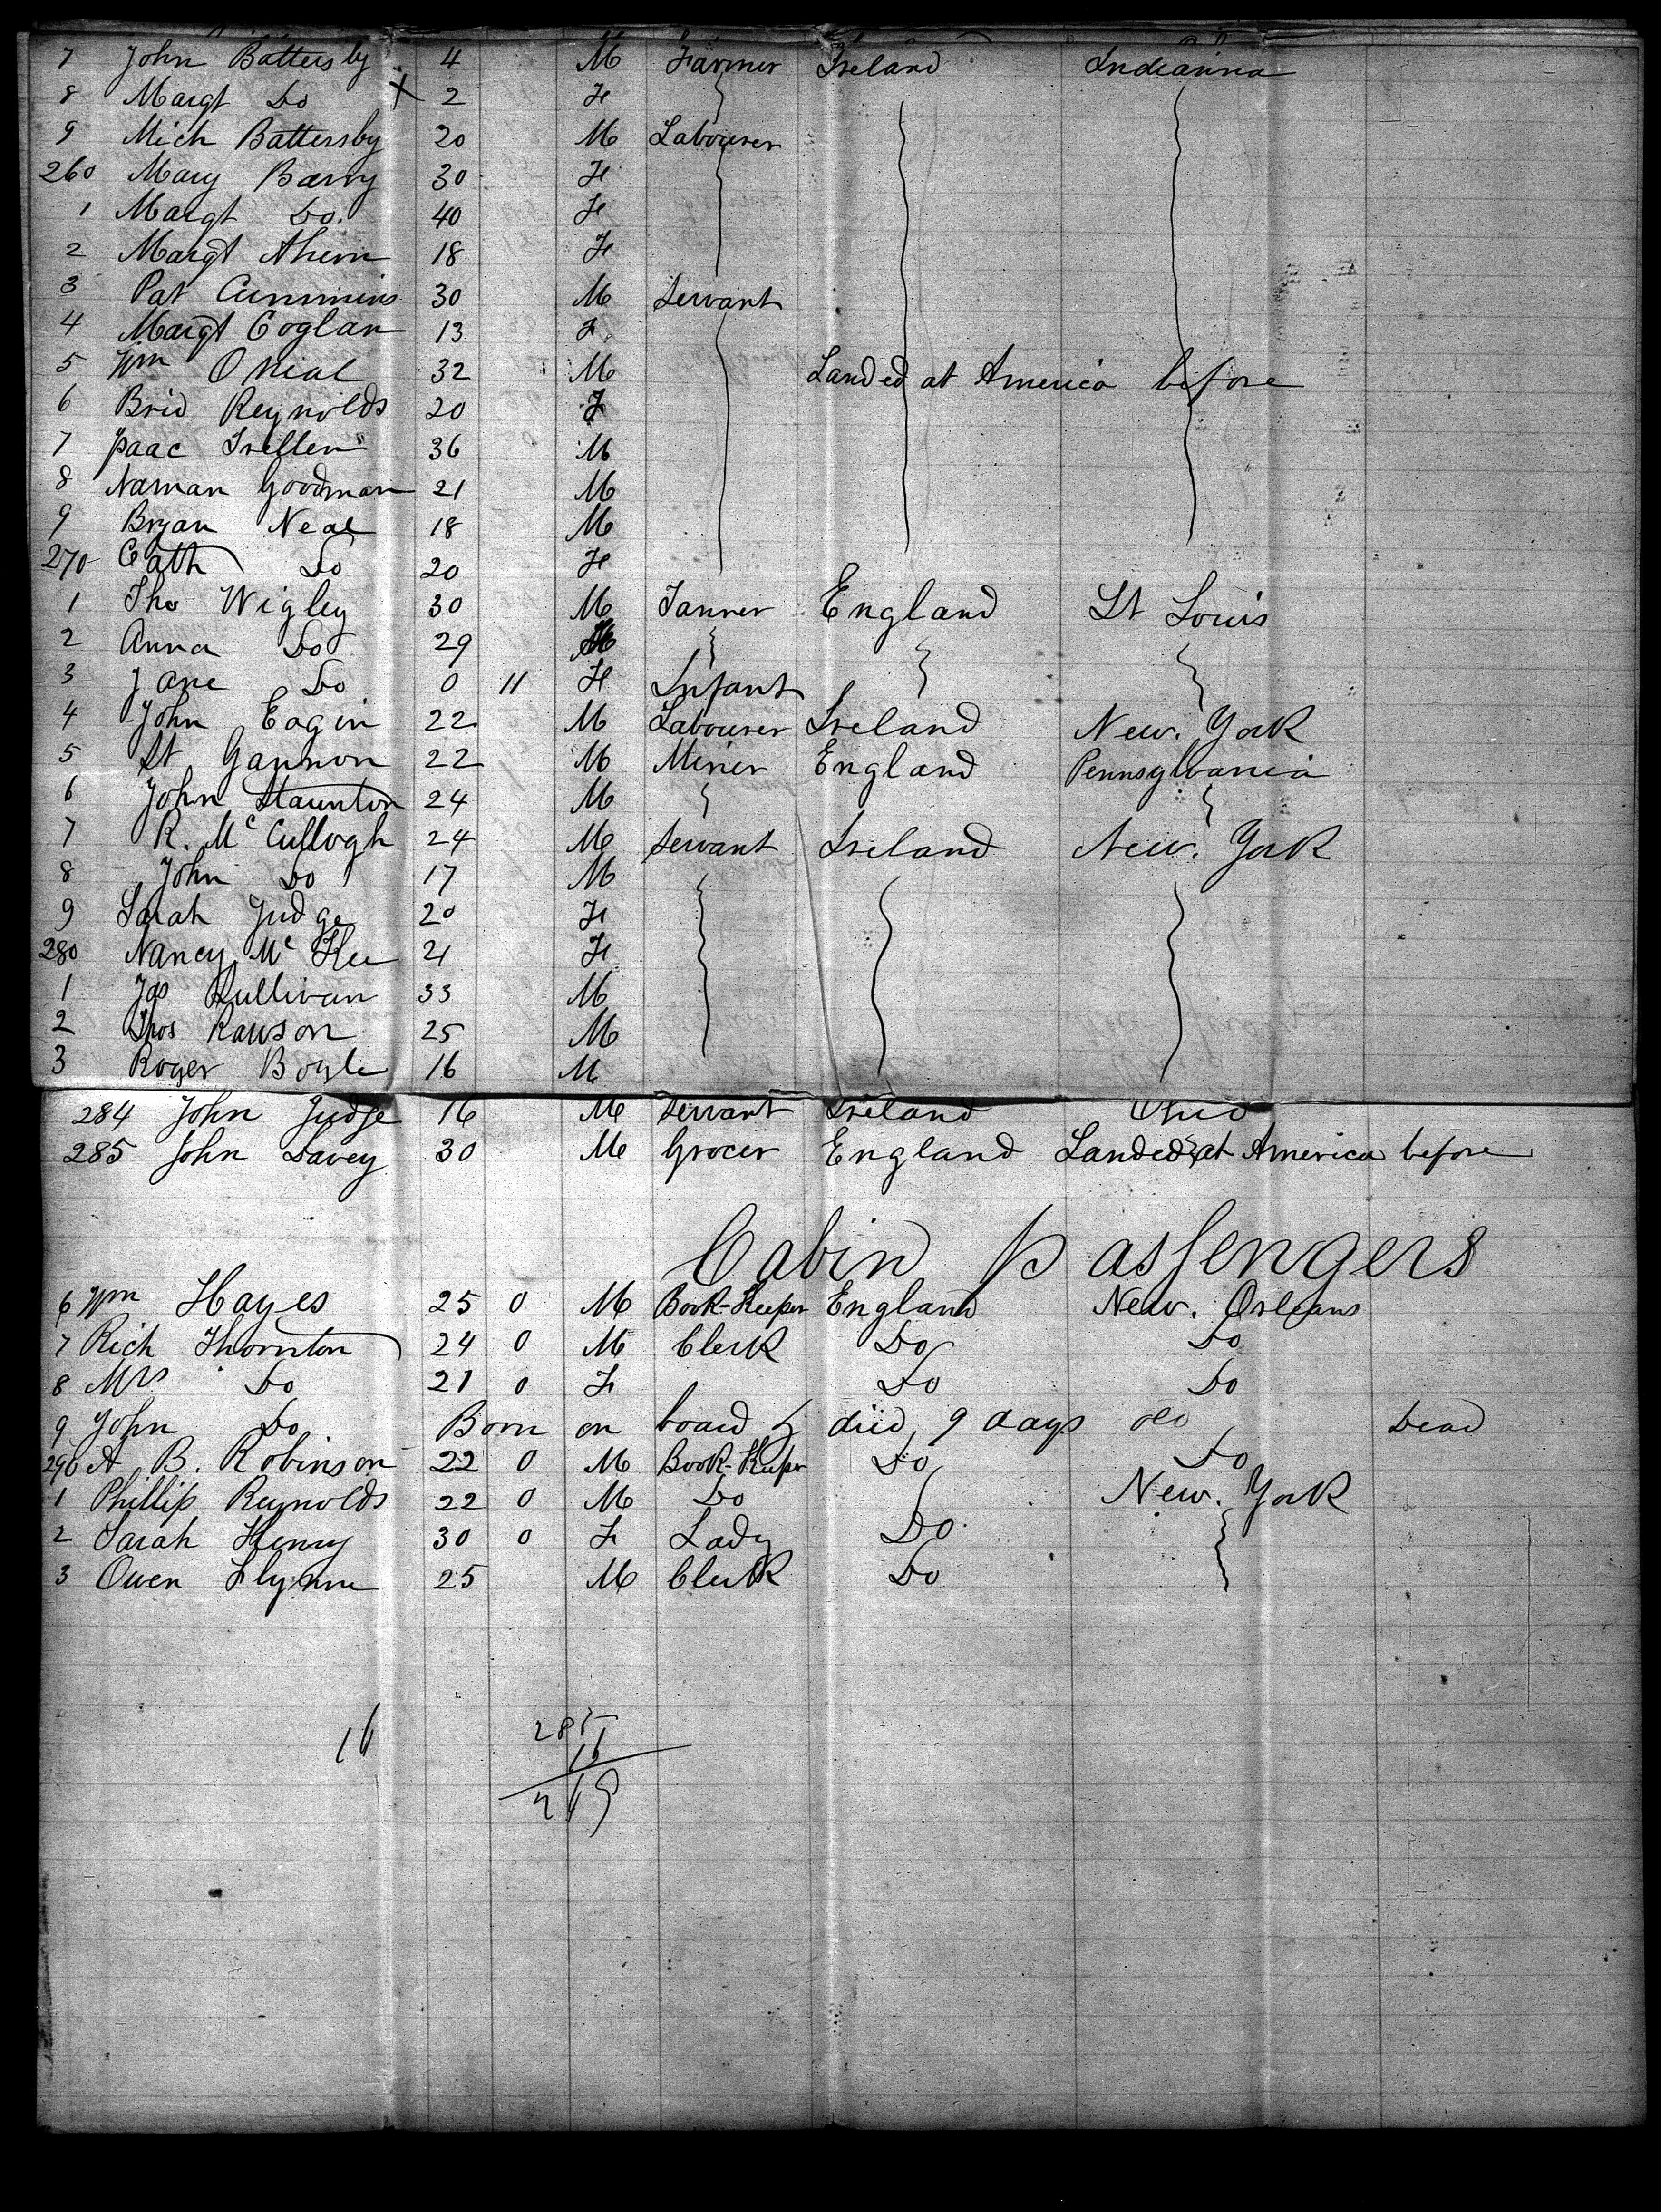 7 John Battersby 4 M Farmer Ireland Indianna
8 Margt Do X 2 F
9 Mich Battersby 20 M Labourer
260 Mary Barry 30 F
1 Margt Do. 40 F
2 Margt Ahern 18 F
3 Pat Cummins 30 M Servant
4 Margt Coglan 13 F
5 Wm O Nial 32 M Landed at America before
6 Brid Reynolds 20 F
7 Isaac 36 M
8 Naman Goodman 21 M
9 Bryan Neal 18 M
270 Cath Do 20 F
1 Tho Wigley 30 M Tanner England St Louis
2 Anna Do 29
3 Jane Do 0 11 F Infant
4 John Eagin 22 M Labourer Ireland New. York
5 Gannon 22 M Miner England Pennsylvania
6 John Staunton 24 M
7 R. Mc Cullogh 24 M Servant Ireland New. York
8 John Do 17 M
9 Sarah Judge 20 F
280 Nancy Mc Kee 21 F
1 Jas Sullivan 33 M
2 Thos Rawson 25 M
3 Roger Boyle 16 M
284 John Judge 16 M Servant Ireland Ohio
285 John Davey 30 M Grocer England Landed at America before
Cabin Passengers
6 Wm Hayes 25 0 M Book-Keeper England New. Orleans
7 Rich Thornton 24 0 M Clerk Do Do
8 Mrs Do 21 0 F Do Do
9 John Do Born on board & died 9 days old Dead
290 A B. Robinson 22 0 M Book-Keeper Do Do
1 Phillip Reynolds 22 0 M Do New. York
2 Sarah Henry 30 0 F Lady Do
3 Owen Flynn 25 M Clerk Do
16 285
16